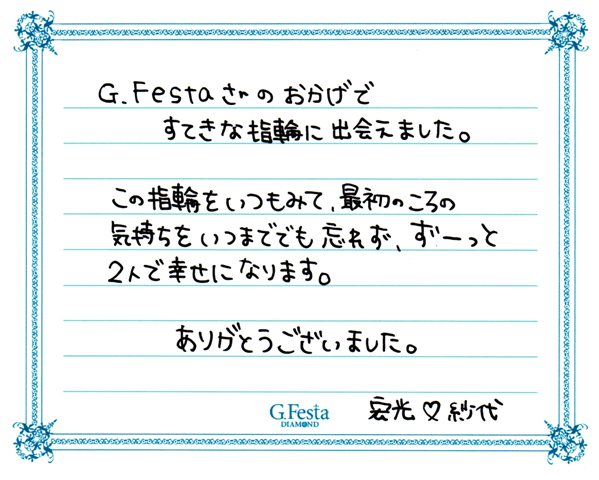 G.Festaさんのおかげで
すてきな指輪に出会えました。
この指輪をいつもみて、最初のころの
気持ちをいつまででも忘れず、ずーっと
2人で幸せになります。
ありがとうございました。
宏光♡紗代
G.Festa
DIAMOND